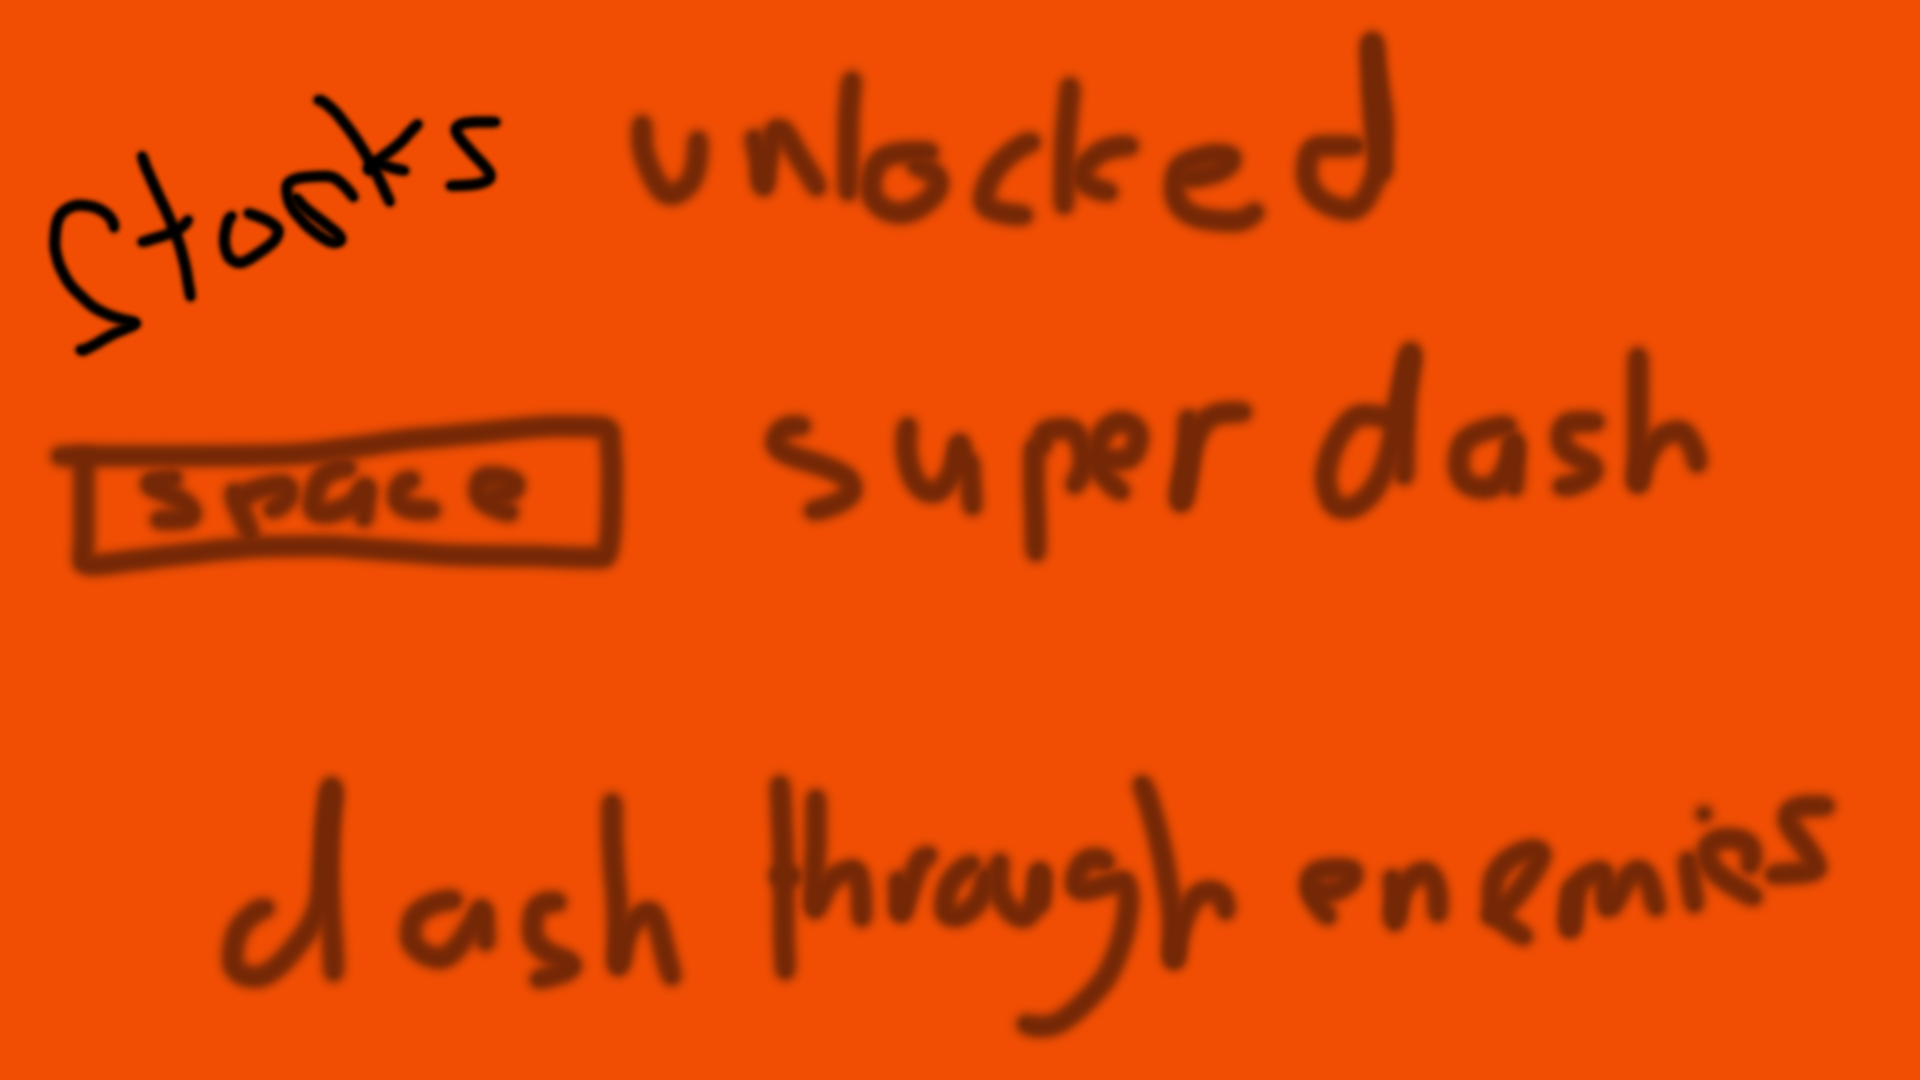 Stonks unlocked
space super dash
dash through enemies